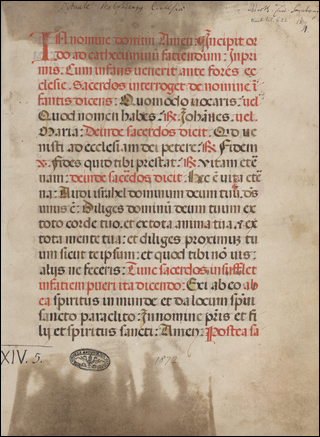 In nomine domini Amen: Incipit or
do ad cathecuminum faciendum: Inpri
mis. Cum infans venerit ante fores ec
clesie. Sacerdos interroget de nomine i
fantis dicens: Quomodo vocaris: vel
Quod nomen habes. R. Johānes. vel.
Maria: Deinde sacerdos dicit. Qd ve
nisti ad ecclesiam dei petere: R. Fidem
v. fides quid tibi prestat: R. vitam etē
nam: deinde sacerdos dicit. Hec ē vita etē
na: Audi israhel dominum deum tuū. dns
unus ē: Diliges dominū deum tuum ex
toto corde tuo. et ex tota anima tua. et ex
tota mente tua: et diliges proximū tu
um sicut te ipsum: et quod tibi nō vis:
alijs ne feceris: Tunc sacerdos insufflet
in faciem pueri ita dicendo: Exi ab eo ab
ea spiritus inmunde et da locum spūi
sancto paraclito: In nomine pris et fi
lij et spiritus sancti: Amen: Postea sa
XIV. 5.
1872